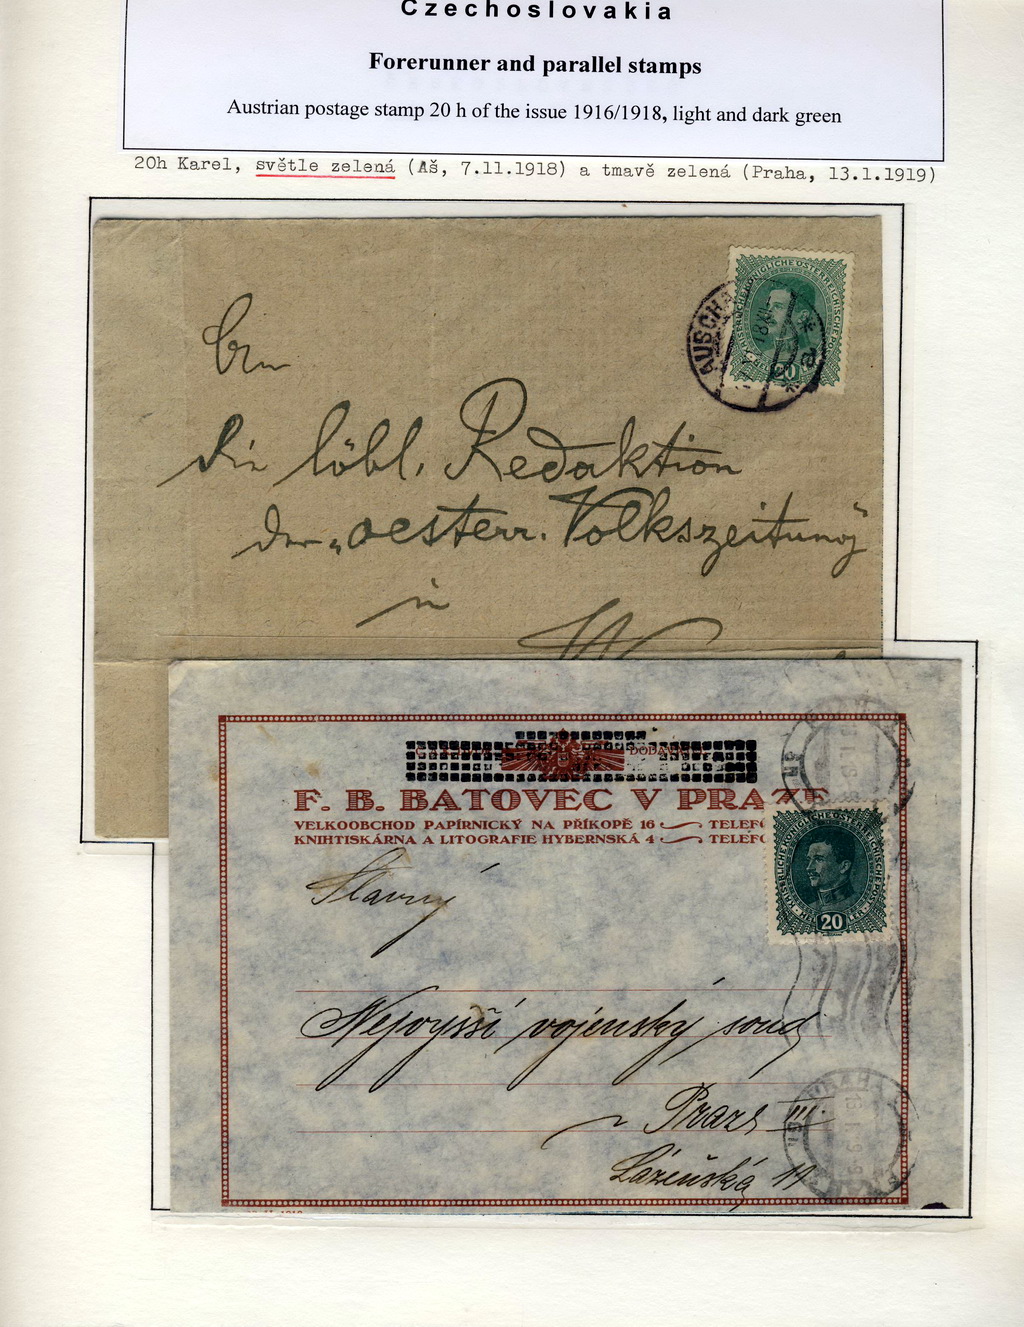 Czechoslovakia
Forerunner and parallel stamps
Austrian postage stamp 20 h of the issue 1916/1918, light and dark green
20h Karel, světle zelená (Aš, 7.11.1918) a tmavě zelená (Praha, 13.1.1919)
KAISERLICHE KÖNIGLICHE ÖSTERREICHISCHE POST
20
AUSCHA
Die löbl. Redaktion
der „oesterr. Volkszeitung"
in
F. B. BATOVEC V PRAZE
VELKOOBCHOD PAPÍRNICKÝ NA PŘÍKOPĚ 16 TELEFO
KNIHTISKÁRNA A LITOGRAFIE HYBERNSKÁ 4 TELEFO
KAISERLICHE KÖNIGLICHE ÖSTERREICHISCHE POST
HELLER
20
Slavný
Nejvyšší vojenský soud
v Praze III.
Lázeňská 11
PRAHA